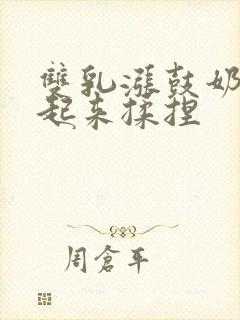 雙乳漲鼓奶
起來揉捏
周倉平